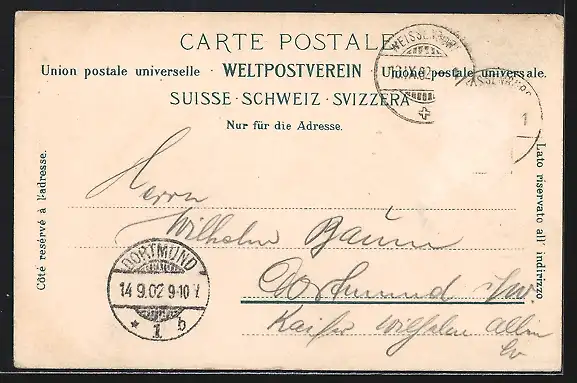 CARTE POSTALE
Union postale universelle · WELTPOSTVEREIN · Unione postale universale.
SUISSE · SCHWEIZ · SVIZZERA
Nur für die Adresse.
Côté reservé à l'adresse.
Lato riservato all' indirizzo
Herrn
Wilhelm Baum
Dortmund i/W.
Kaiser Wilhelm Allee
DORTMUND
14.9.02 9-10 V
* 1 b
1